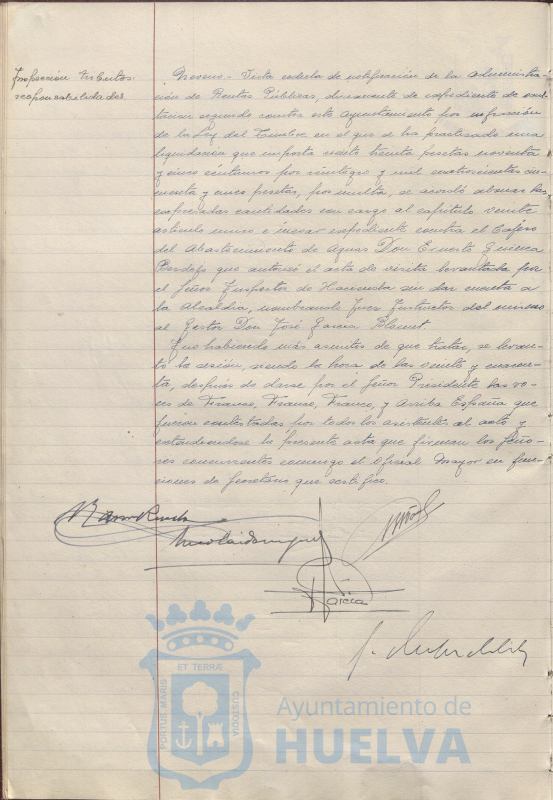 Inspección tributos:
responsabilidades.
Noveno.- Vista cédula de notificación de la Administra-
ción de Rentas Públicas, dimanante de expediente de
seguido contra este Ayuntamiento por infracción
de la Ley del Timbre en el que se ha practicado una
liquidación que importa ciento treinta pesetas noventa
y cinco céntimos por reintegro y mil cuatrocientas cin-
cuenta y cinco pesetas, por multa, se acordó abonar las
expresadas cantidades con cargo al capítulo veinte
artículo único e incoar expediente contra el Cajero
del Abastecimiento de Aguas Don Ernesto
que autorizó el acta de visita levantada por
el Señor Inspector de Hacienda sin dar cuenta a
la Alcaldía, nombrando Juez Instructor del mismo
al Gestor Don José García
Y no habiendo más asuntos de que tratar, se levan-
tó la sesión, siendo la hora de las veinte y cuaren-
ta, después de darse por el Señor Presidente las vo-
ces de Franco, Franco, Franco, y Arriba España que
fueron contestadas por todos los asistentes al acto y
extendiéndose la presente acta que firman los Seño-
res concurrentes conmigo el Oficial Mayor en fun-
ciones de Secretario que certifico.
García
PORTUS MARIS
ET TERRÆ
CUSTODIA
Ayuntamiento de
HUELVA